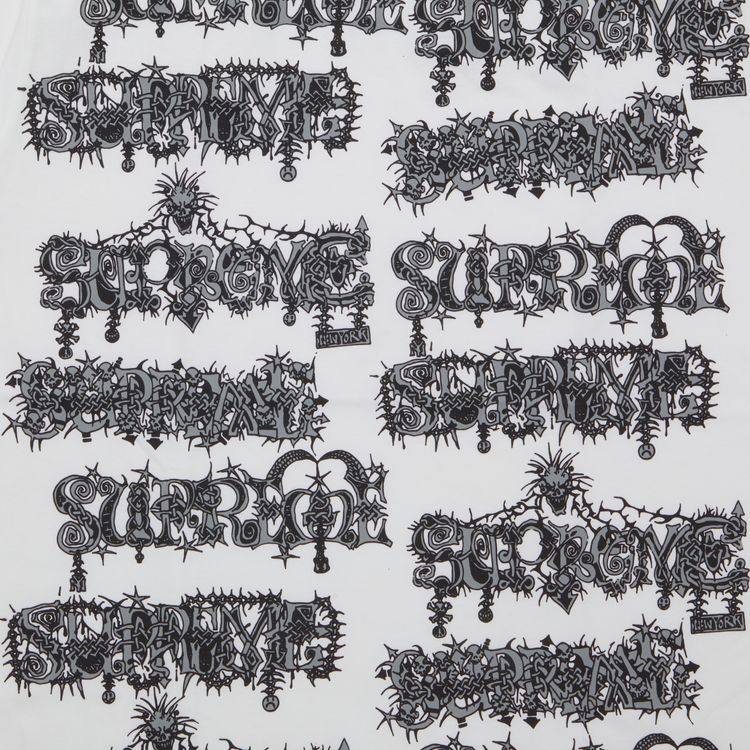 SUPREME
SUPREME
NEW YORK
SUPREME
SUPREME
SUPREME
NEW YORK
SUPREME
SUPREME
SUPREME
SUPREME
SUPREME
SUPREME
NEW YORK
SUPREME
SUPREME
SUPREME